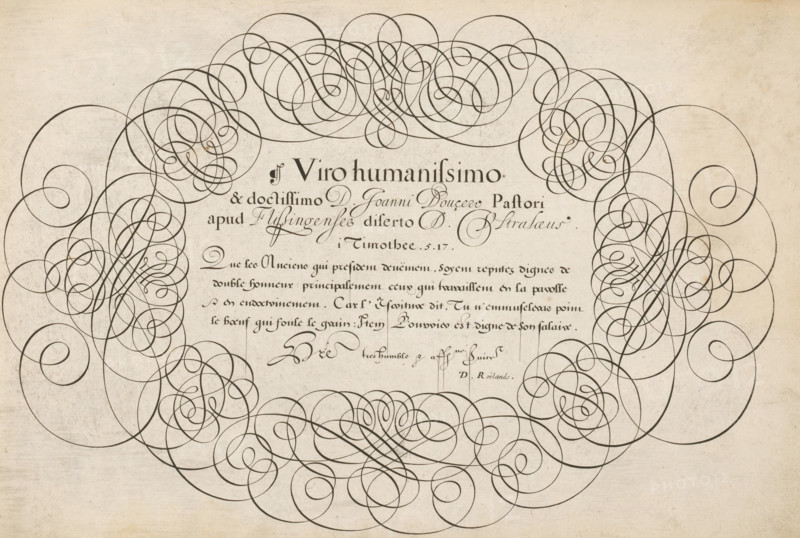 ¶ Viro humanissimo
& doctissimo D. Joanni Doucere Pastori
apud Flyssingenses diserto D. Stralæus.
1 Timothee. 5.17.
Que les Anciens qui president deuëment, soyent reputez dignes de
double honneur principalement ceux qui travaillent en la parolle
& en endoctrinement. Car l'Escriture dit, Tu n'emmuseleras point
le bœuf qui foule le grain: Item L'ouvrier est digne de son salaire.
Vre tres humble & aff.
D. Roelands.